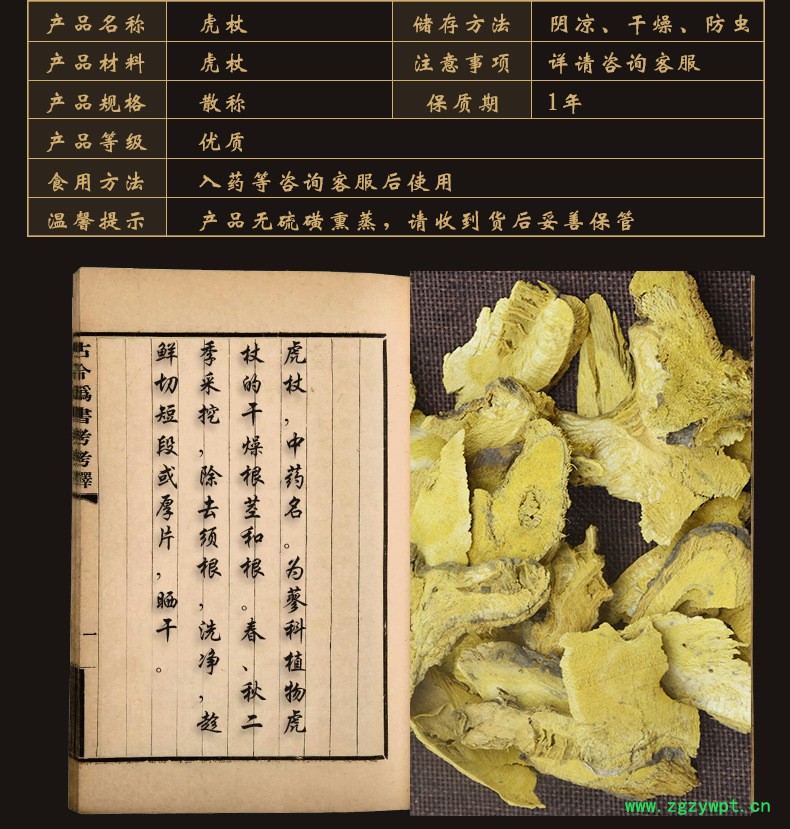 产品名称 虎杖 储存方法 阴凉、干燥、防虫
产品材料 虎杖 注意事项 详请咨询客服
产品规格 散称 保质期 1年
产品等级 优质
食用方法 入药等咨询客服后使用
温馨提示 产品无硫磺熏蒸，请收到货后妥善保管
虎杖，中药名。为蓼科植物虎
杖的干燥根茎和根。春、秋二
季采挖，除去须根，洗净，趁
鲜切短段或厚片，晒干。
書考考釋
一
www.zgzywpt.cn